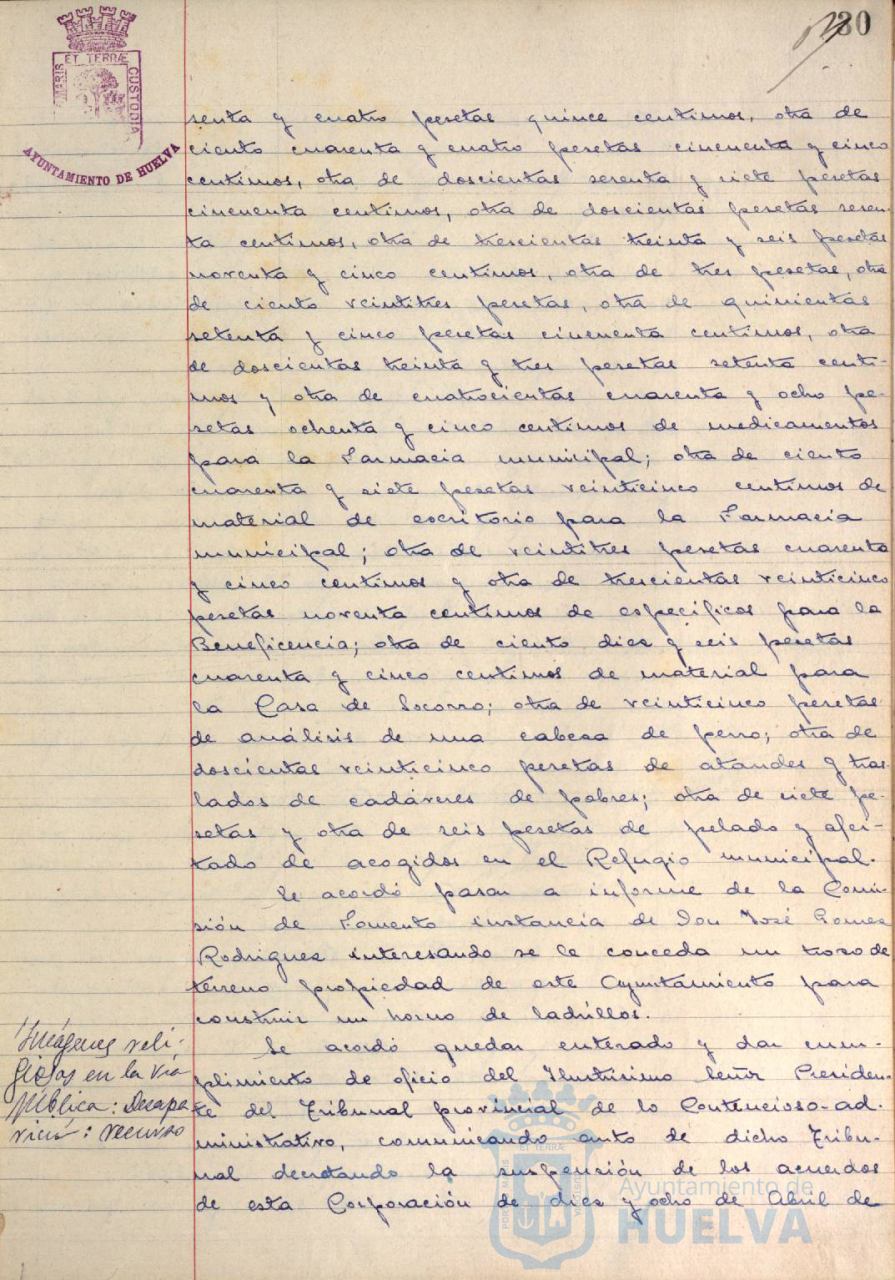 80
ET TERRÆ
MARIS
CUSTODIA
AYUNTAMIENTO DE HUELVA
senta y cuatro pesetas quince centimos, otra de
ciento cuarenta y cuatro pesetas cincuenta y cinco
centimos, otra de doscientas serenta y siete pesetas
cincuenta centimos, otra de doscientas pesetas sesen-
ta centimos, otra de trescientas treinta y seis pesetas
noventa y cinco centimos, otra de tres pesetas, otra
de ciento veintitres pesetas, otra de quinientas
setenta y cinco pesetas cincuenta centimos, otra
de doscientas treinta y tres pesetas setenta centi-
mos y otra de cuatrocientas cuarenta y ocho pe-
setas ochenta y cinco centimos de medicamentos
para la Farmacia municipal; otra de ciento
cuarenta y siete pesetas veinticinco centimos de
material de escritorio para la Farmacia
municipal; otra de veintitres pesetas cuarenta
y cinco centimos y otra de trescientas veinticinco
pesetas noventa centimos de específicos para la
Beneficencia; otra de ciento diez y seis pesetas
cuarenta y cinco centimos de material para
la Casa de Socorro; otra de veinticinco pesetas
de análisis de una cabeza de perro; otra de
doscientas veinticinco pesetas de ataudes y tras-
lados de cadáveres de pobres; otra de siete pe-
setas y otra de seis pesetas de pelado y afei-
tado de acogidos en el Refugio municipal.
Se acordó pasar a informe de la Comi-
sión de Fomento instancia de Don José Gomez
Rodriguez interesando se le conceda un trozo de
terreno propiedad de este Ayuntamiento para
construir un horno de ladrillos.
Imágenes reli-
giosas en la vía
pública: Desapa
rició: recurso
Se acordó quedar enterado y dar cum-
plimiento de oficio del Ilustrísimo Señor Presiden-
te del Tribunal provincial de lo Contencioso-ad-
ministrativo, comunicando auto de dicho Tribu-
nal decretando la suspensión de los acuerdos
de esta Corporación de diez y ocho de Abril de
ET TERRÆ
Ayuntamiento de
HUELVA